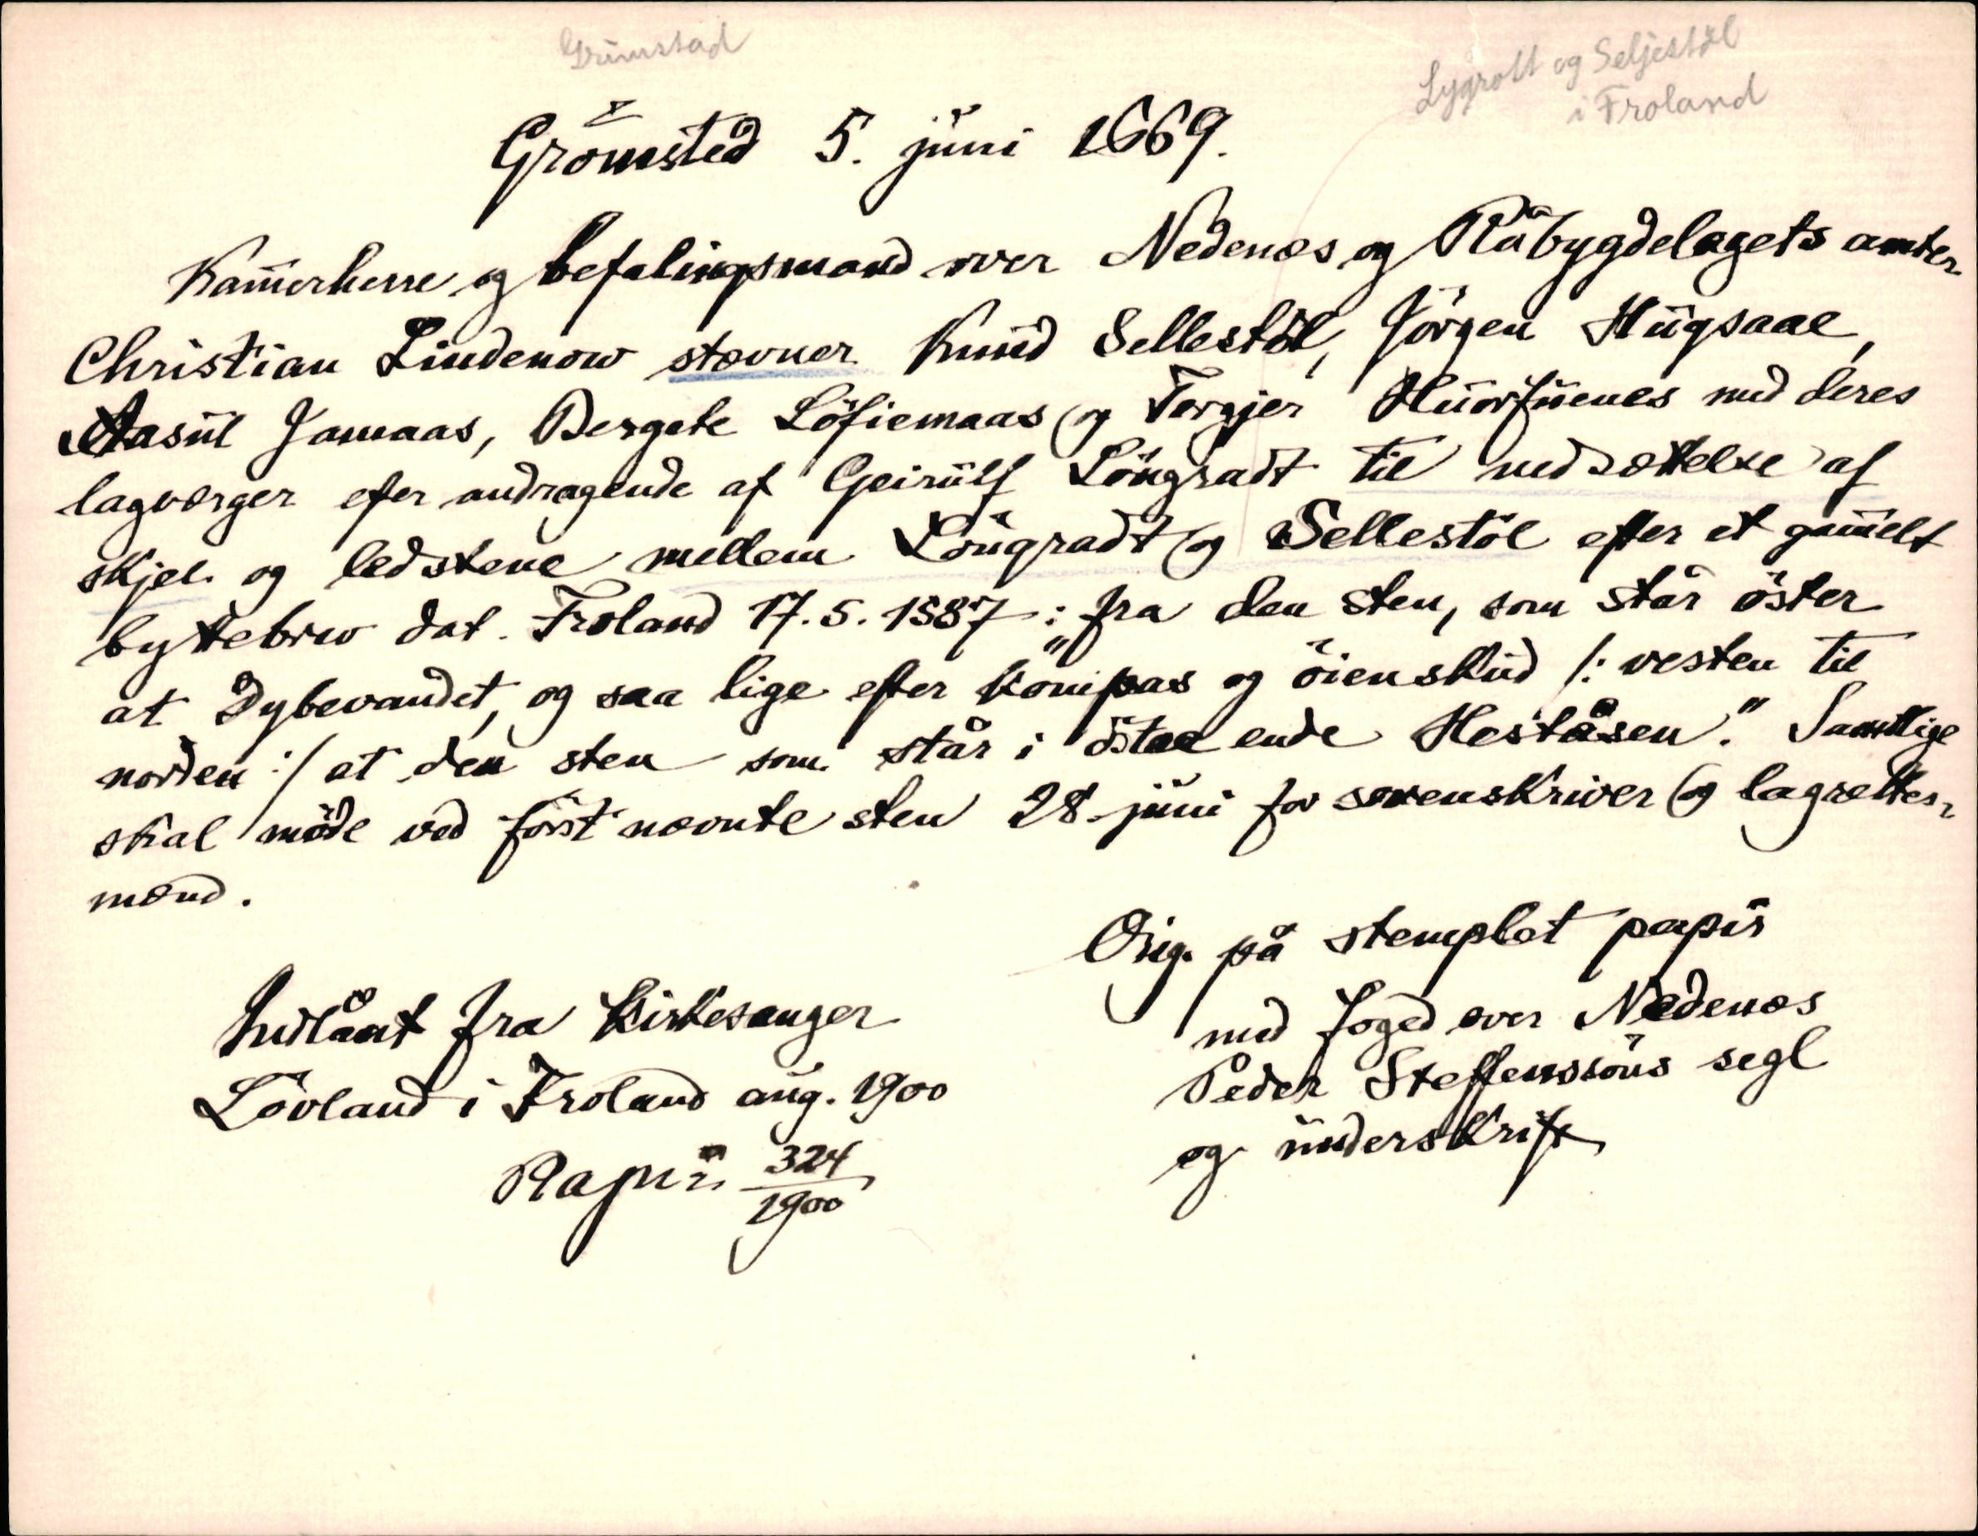 Grimstad
Lygrott og Seljestöl
i Froland
Grömsted 5. juni 1669.
Kam̄erherre og befalingsmand over Nedenæs og Råbygdelagets amter
Christian Lindenow stævner Knud Sellestöl, Jörgen Hugsaae,
Aasul Jamaas, Bergete Löfiemaas og Torgjer Huorfuenes med deres
lagværger efter andragende af Geirulf Löugradt til nedsættelse af
skjel og ledstene mellem Löugradt og Sellestöl efter et gam̄elt
byttebrev dat. Froland 17.5.1587: „fra den sten, som står öster
at Dybevandet, og saa lige efter kompas og öienskud /: vesten til
norden :/ at den sten som står i östae ende Heståsen." Samtlige
skal möde ved först nævnte sten 28. juni for sorenskriver og lagrettes-
mænd.
Orig. på stemplet papir
med foged over Nedenæs
Peder Steffenssöns segl
og underskrift
Indlånt fra kirkesanger
Lövland i Froland aug. 1900
Rapu 324
1900